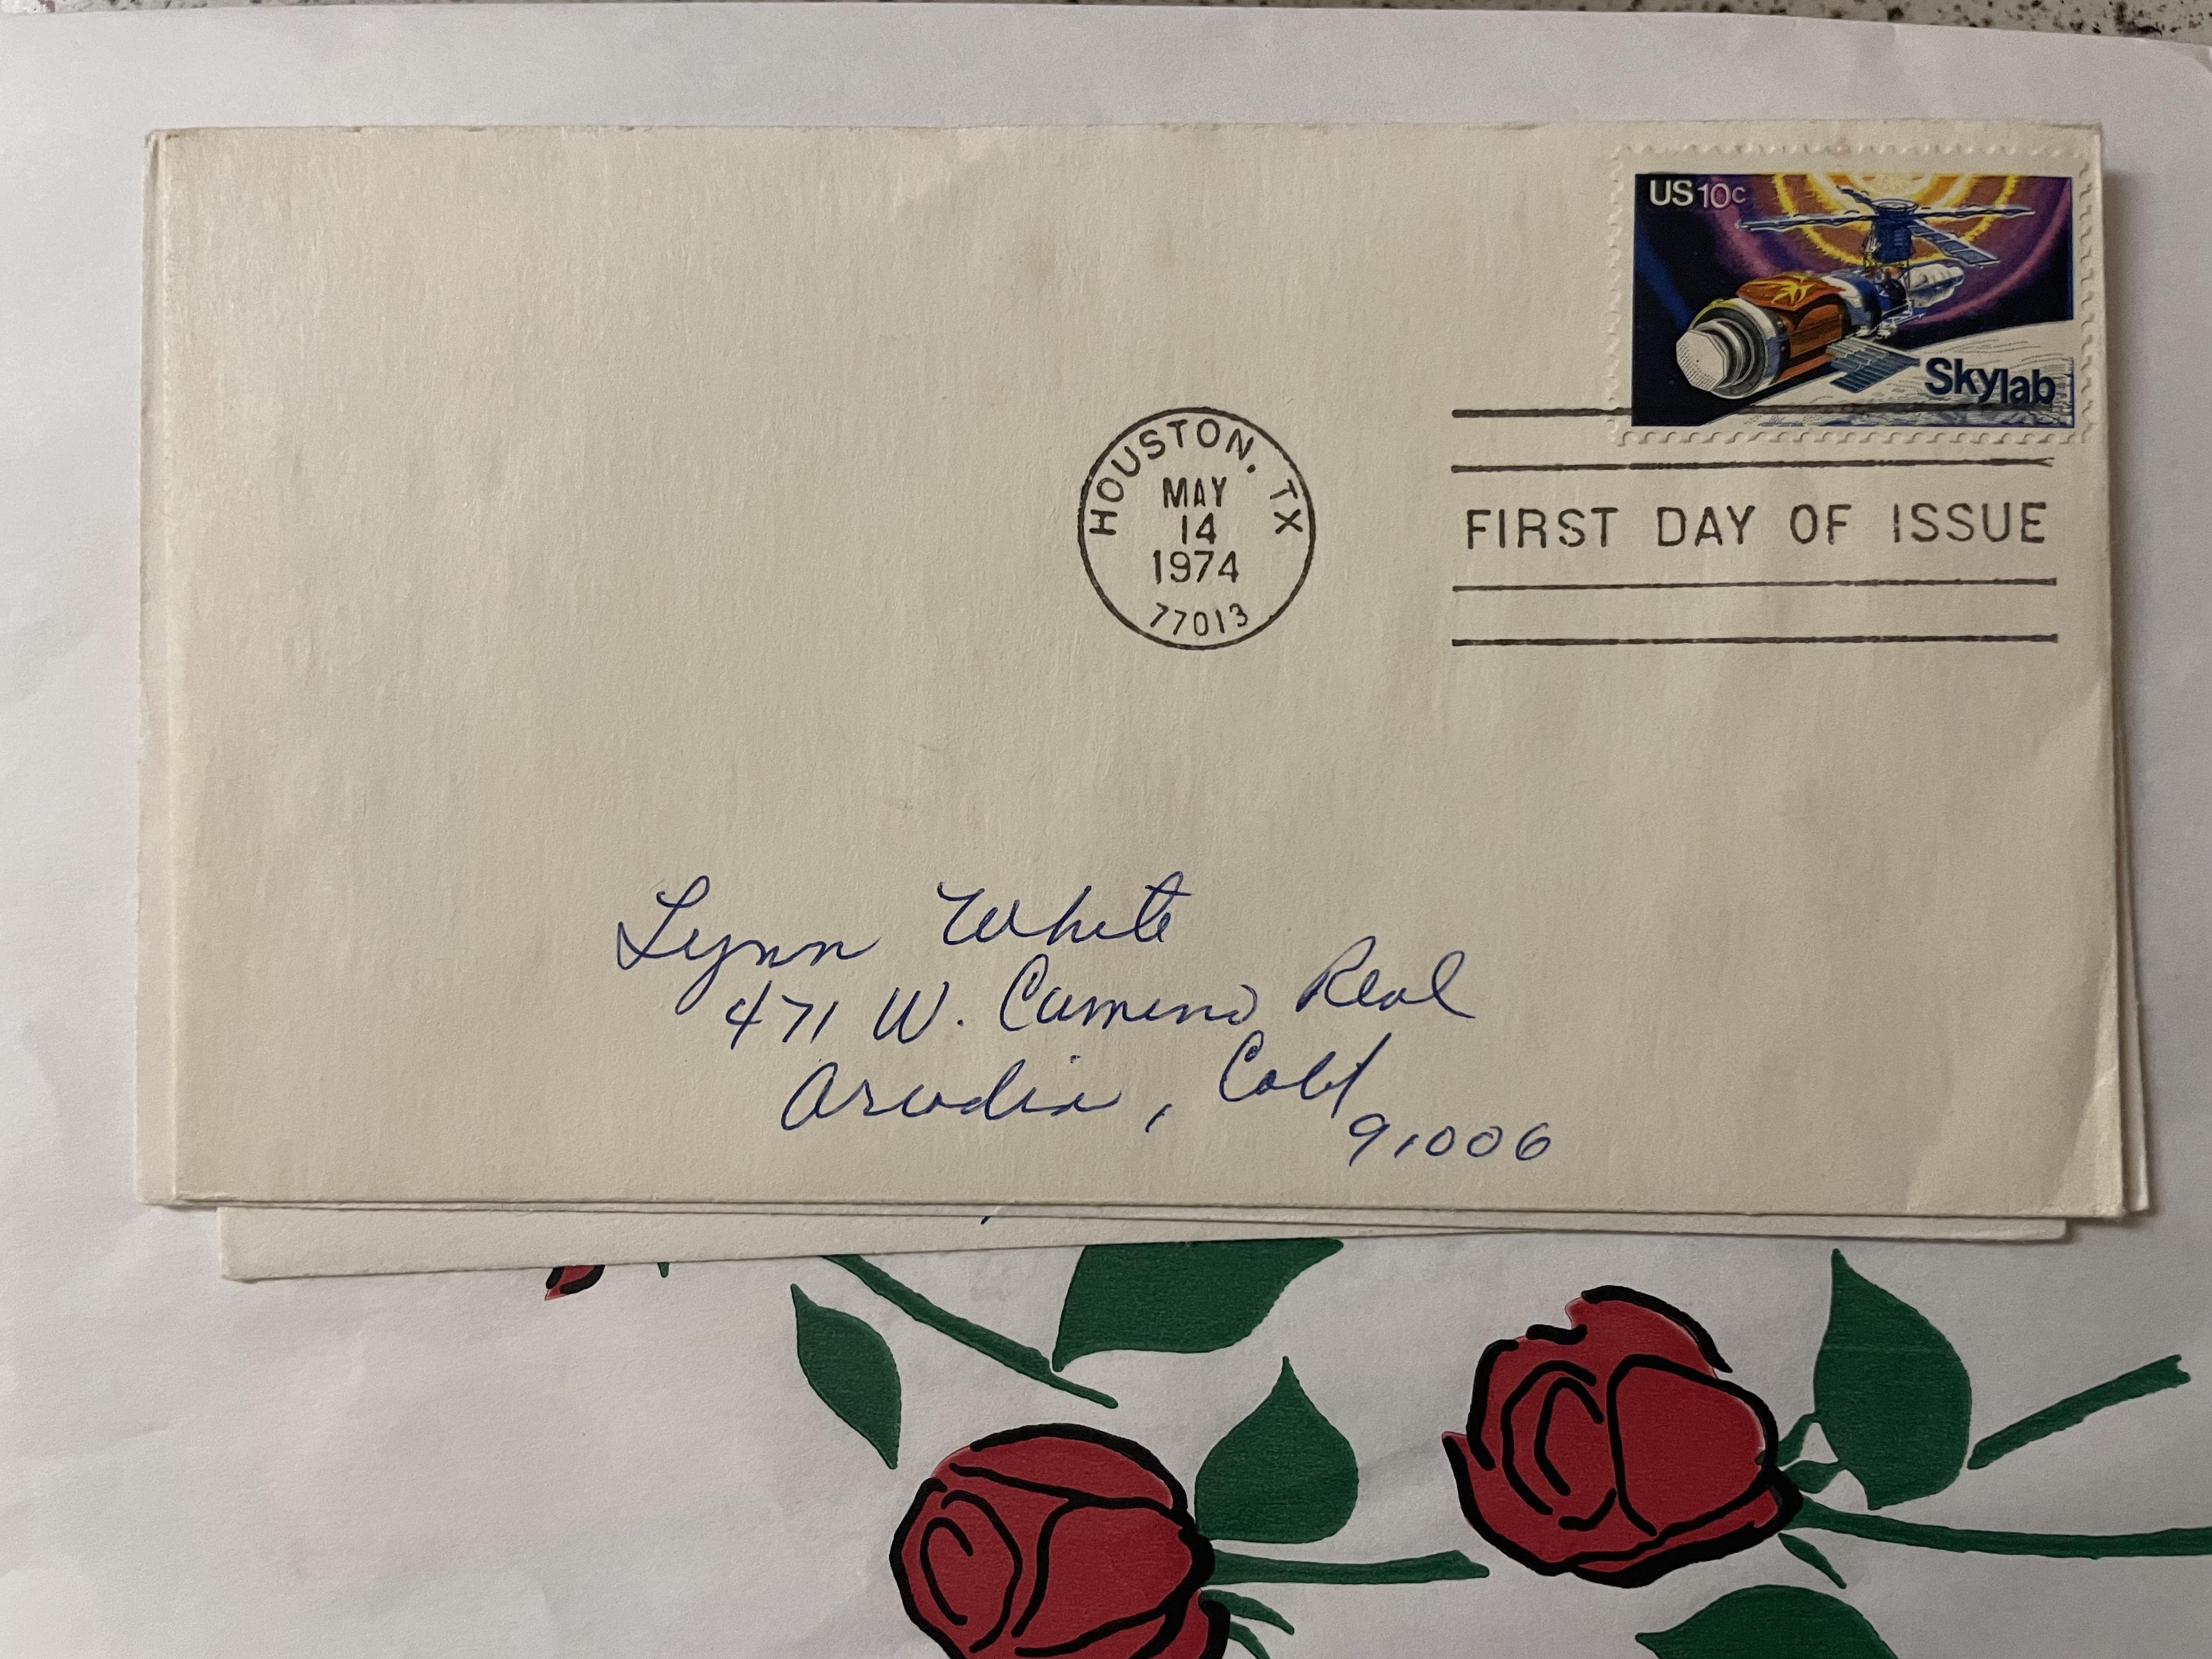 US 10c
Skylab
HOUSTON, TX
MAY
14
1974
77013
FIRST DAY OF ISSUE
Lynn White
471 W. Camino Real
Arcadia, Calif
91006